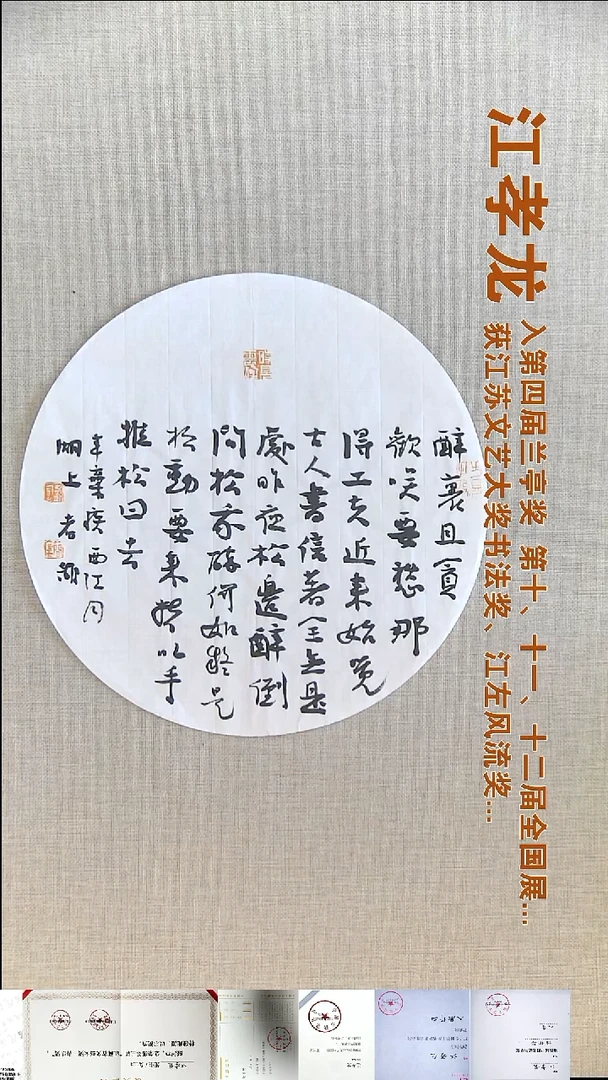 江孝龙
入第四届兰亭奖 第十、十一、十二届全国展...
获江苏文艺大奖书法奖、江左风流奖...
醉裏且貪
歡咲要愁那
得工夫近来始覺
古人書信著全无是
處昨夜松邊醉倒
問松我醉何如疑是
松動要来扶以手
推松曰去
辛棄疾西江月
湖上孝龍